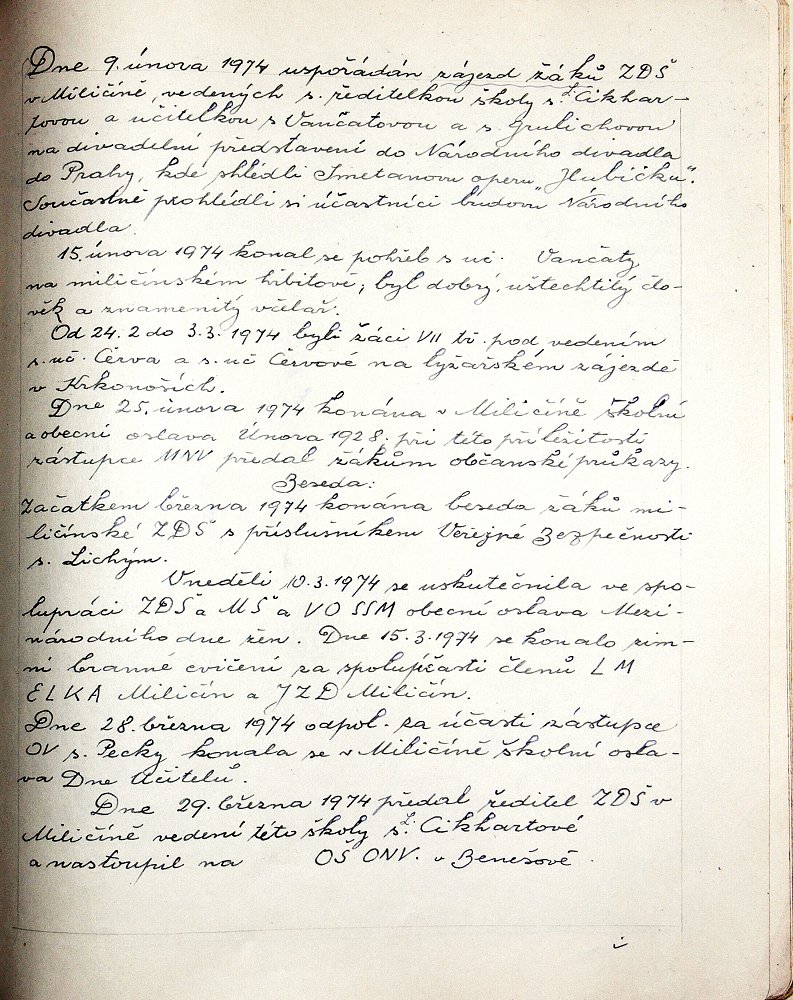 Dne 9. února 1974 uspořádán zájezd žáků ZDŠ
v Miličíně, vedených s. ředitelkou školy s. Z. Cikhar-
tovou a učitelkou s Vančatovou a s. Grulichovou
na divadelní představení do Národního divadla
do Prahy, kde shlédli Smetanovu operu „Hubičku".
Součastně prohlédli si účastníci budovu Národního
divadla.
15. února 1974 konal se pohřeb s uč. Vančaty
na miličínském hřbitově; byl dobrý, ušlechtilý člo-
věk a znamenitý včelař.
Od 24. 2 do 3. 3. 1974 byli žáci VII tř. pod vedením
s. uč. Červa a s. uč Červové na lyžařském zájezdě
v Krkonoších.
Dne 25. února 1974 konána v Miličíně školní
a obecní oslava Února 1928. při této příležitosti
zástupce MNV předal žákům občanské průkazy.
Beseda:
Začátkem března 1974 konána beseda žáků mi-
ličínské ZDŠ s příslušníkem Veřejné Bezpečnosti
s. Lichým.
V neděli 10. 3. 1974 se uskutečnila ve spo-
lupráci ZDŠ a MŠ a VO SSM obecní oslava Mezi-
národního dne žen. Dne 15. 3. 1974 se konalo zim-
ní branné cvičení za spoluúčasti členů L M
ELKA Miličín a JZD Miličín.
Dne 28. března 1974 odpol. za účasti zástupce
OV s. Pecky konala se v Miličíně školní osla-
va Dne Učitelů.
Dne 29. března 1974 předal ředitel ZDŠ v
Miličíně vedení této školy s. Z. Cikhartové
a nastoupil na OŠ ONV. v Benešově.